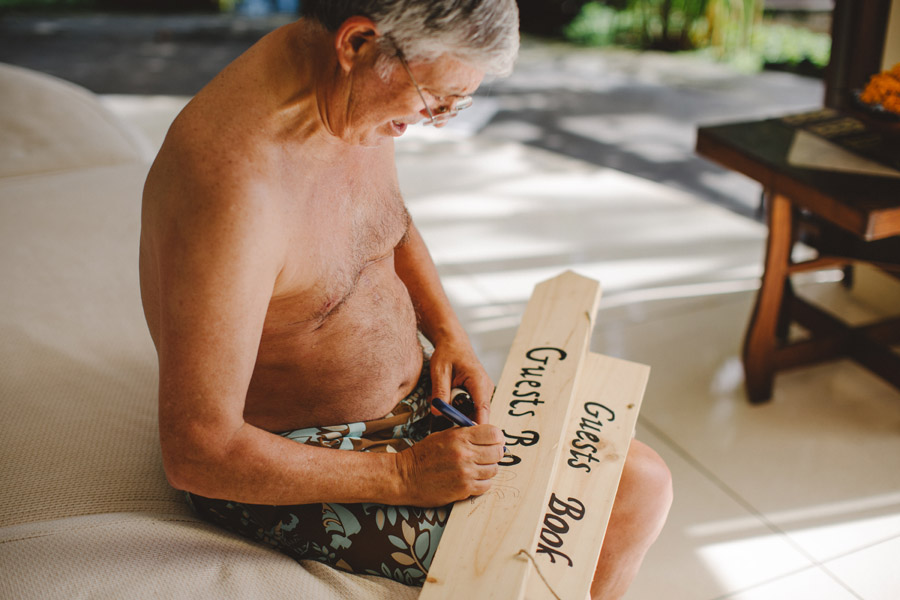 Guests Bo
Guests Book